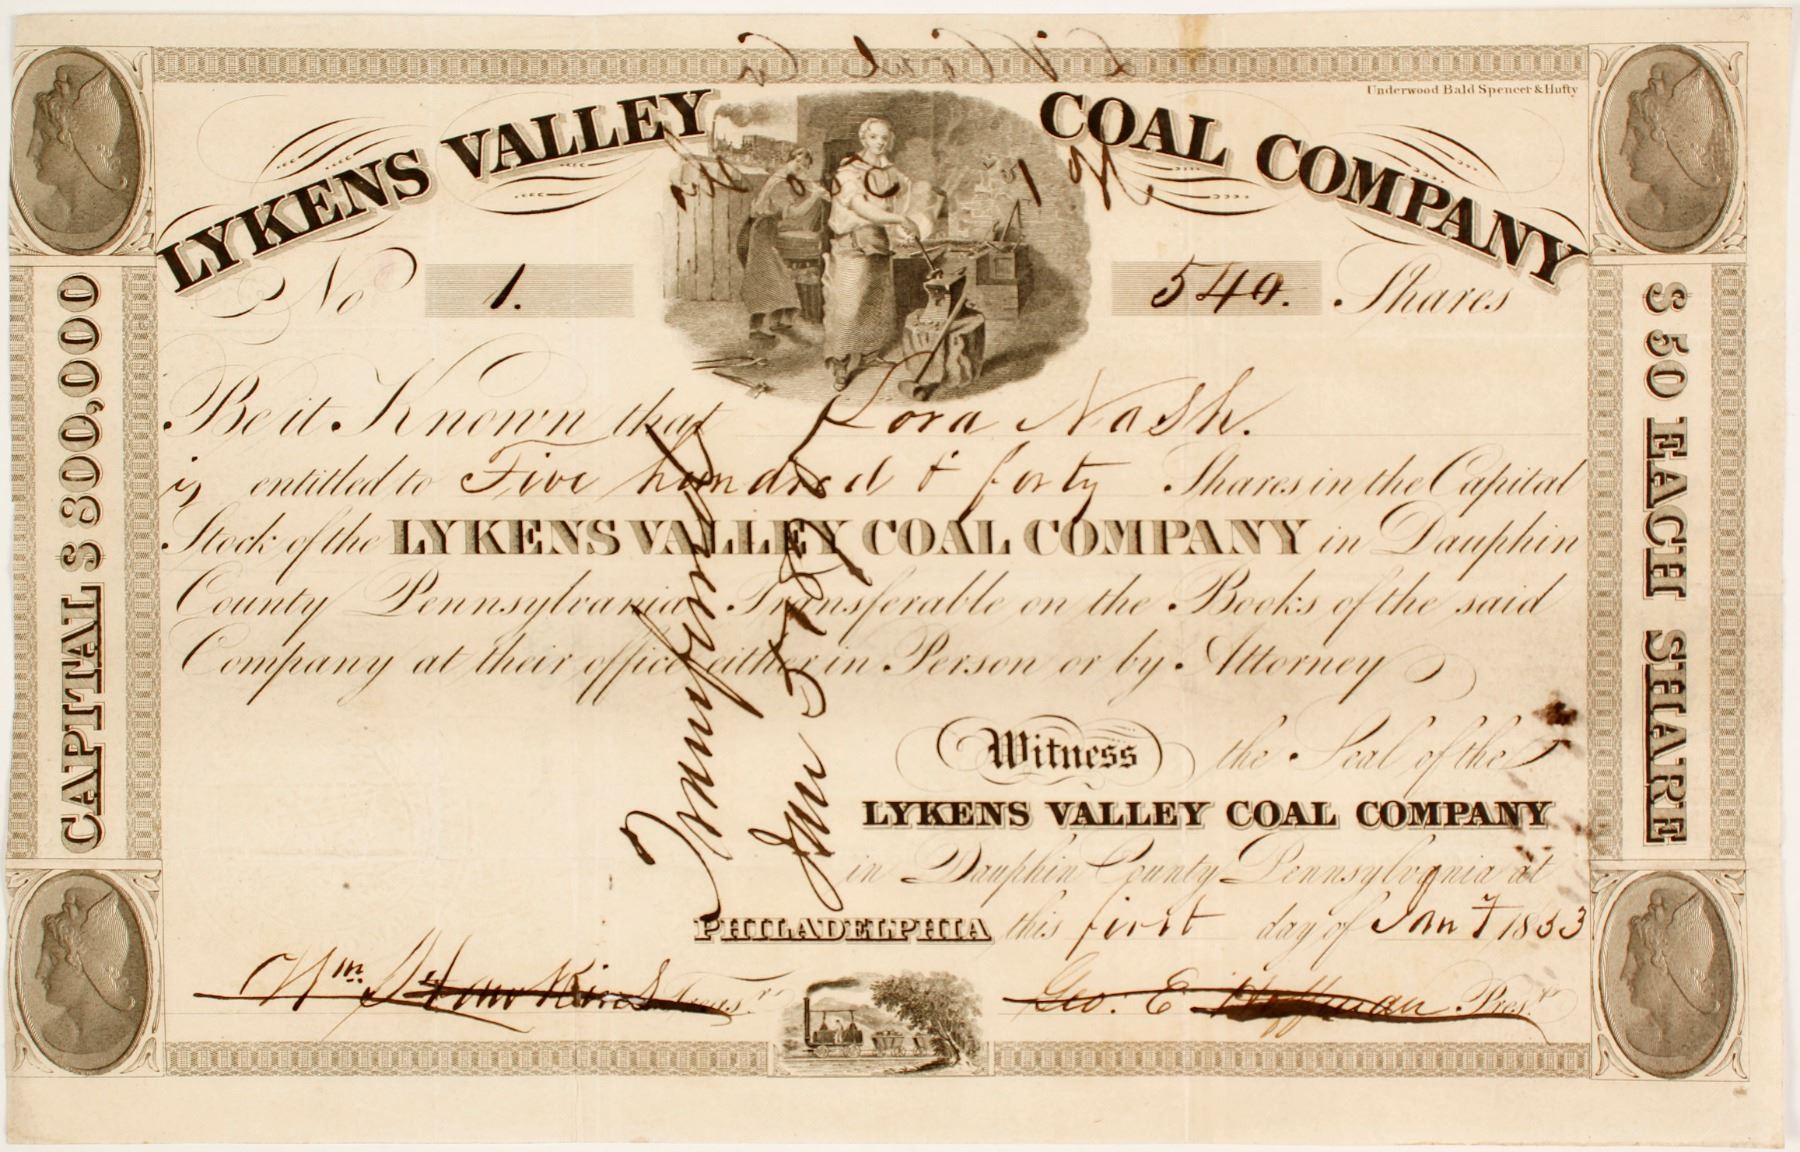 Underwood Bald Spencer & Hufty
LYKENS VALLEY COAL COMPANY
No 1. 540. Shares
Be it Known that Lora Nash.
is entitled to Five hundred & forty Shares in the Capital
Stock of the LYKENS VALLEY COAL COMPANY in Dauphin
County Pennsylvania Transferable on the Books of the said
Company at their office either in Person or by Attorney
Witness the Seal of the
LYKENS VALLEY COAL COMPANY
in Dauphin County Pennsylvania at
PHILADELPHIA this first day of Jany 1833
Wm Hawkins Treasr
Geo. E Hoffman Presdt
CAPITAL $ 800,000
$ 50 EACH SHARE
Transferred